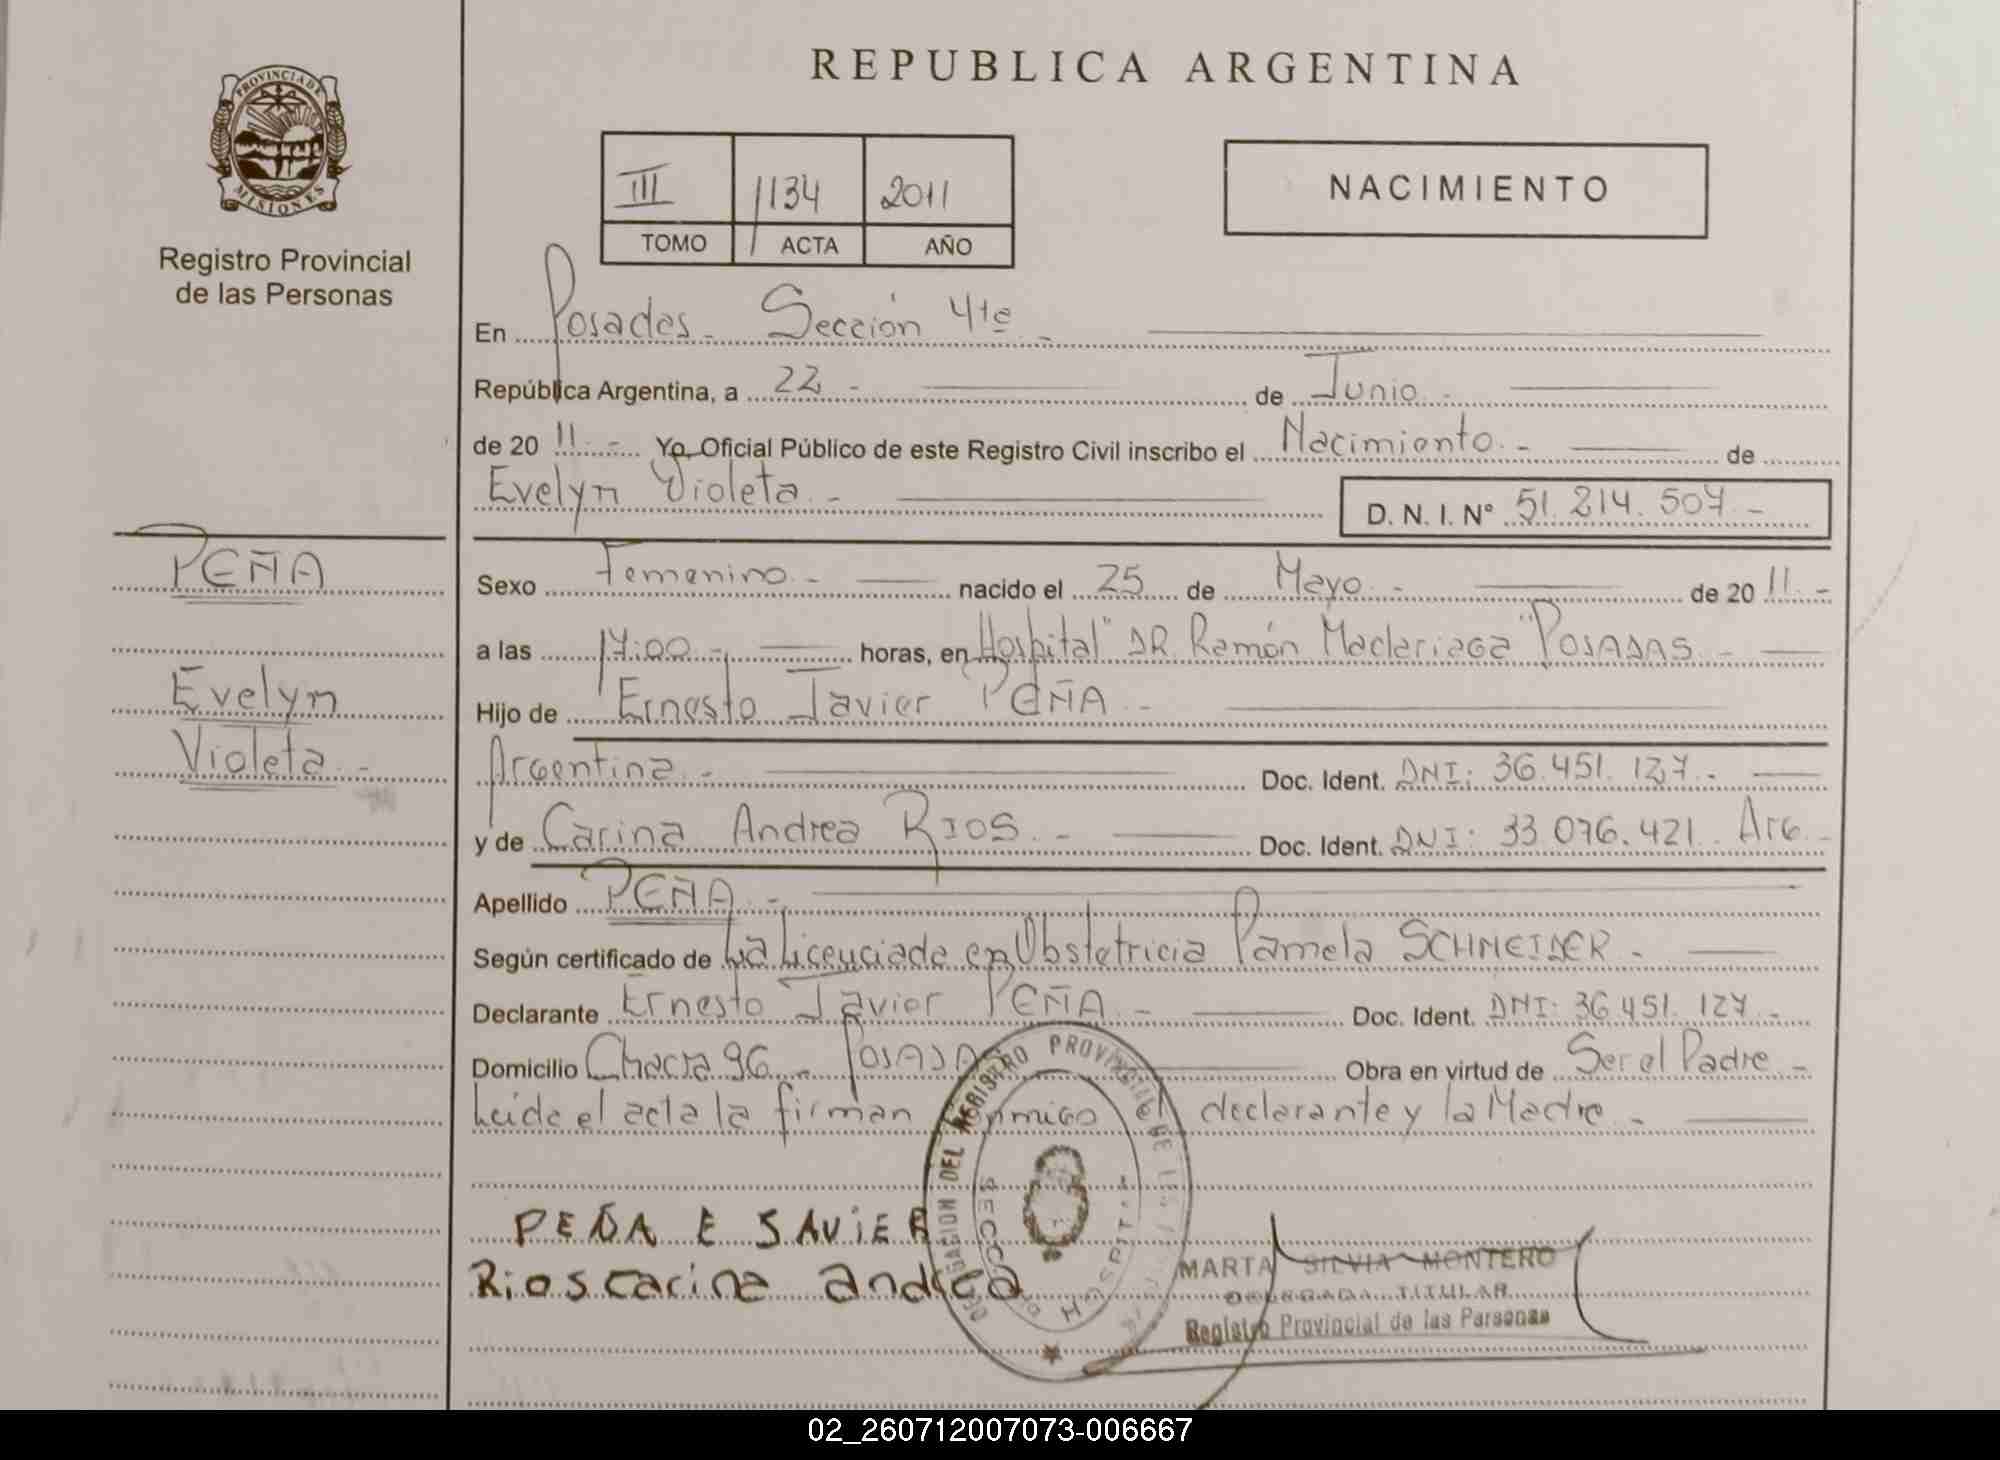 PROVINCIA DE
MISIONES
Registro Provincial
de las Personas
REPUBLICA ARGENTINA
III 1134 2011
TOMO ACTA AÑO
NACIMIENTO
En Posadas - Sección 4ta -
República Argentina, a 22 - de Junio -
de 20 11 - Yo, Oficial Público de este Registro Civil inscribo el Nacimiento - de
Evelyn Violeta - D. N. I. N° 51.214.507 -
PEÑA
Evelyn
Violeta -
Sexo Femenino - nacido el 25 de Mayo - de 20 11 -
a las 17:00 - horas, en Hospital "DR. Ramón Madariaga" POSADAS -
Hijo de Ernesto Javier PEÑA -
Argentina - Doc. Ident. DNI: 36.451.127 -
y de Carina Andrea RIOS - Doc. Ident. DNI: 33.076.421. Arg. -
Apellido PEÑA -
Según certificado de La Licenciada en Obstetricia Pamela SCHNEIDER -
Declarante Ernesto Javier PEÑA - Doc. Ident. DNI: 36.451.127 -
Domicilio Chacra 96 - POSADAS Obra en virtud de Ser el Padre -
Leída el acta la firman conmigo el declarante y la Madre -
PEÑA E SAVIER
Rios carina andrea
DELEGACION DEL REGISTRO PROVINCIAL DE
SECC.
HOSPITAL
MARTA SILVIA MONTERO
DELEGADA TITULAR
Registro Provincial de las Personas
02_260712007073-006667